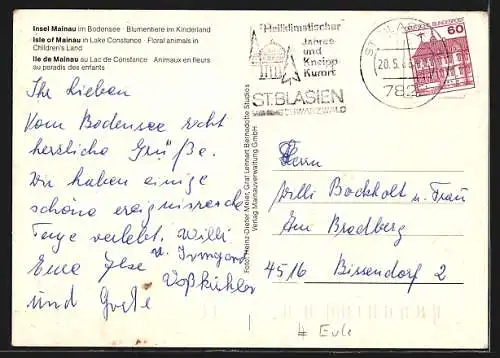 Insel Mainau im Bodensee · Blumentiere im Kinderland
Isle of Mainau in Lake Constance · Floral animals in
Children's Land
Ile de Mainau au Lac de Constance · Animaux en fleurs
au paradis des enfants
Ihr Lieben
Vom Bodensee recht
herzliche Grüße.
Wir haben einige
schöne ereignisreiche
Tage verlebt. Willi
Eure Ilse u. Irmgard
Voßkühler
und Grete
Foto: Heinz-Dieter Meier, Graf Lennart Bernadotte Studios
Verlag Mainauverwaltung GmbH
"Heilklimatischer"
Jahres
und
Kneipp
Kurort
ST.BLASIEN
ST.BLA
20.5.
782
DEUTSCHE BUNDESPOST
60
Herrn
Willi Bockholt u. Frau
Am Bradberg
4516 Bissendorf 2
# Eule